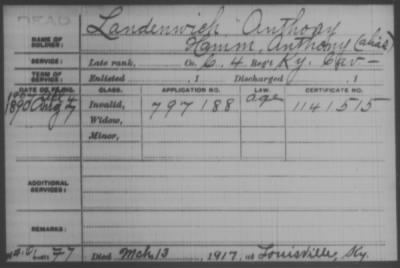 DEAD
NAME OF SOLDIER: Landenwich, Anthony
Hamm, Anthony (alias)
SERVICE: Late rank, Co. C. 4 Reg't Ky. Cav
TERM OF SERVICE: Enlisted , 1 Discharged , 1
DATE OF FILING. CLASS. APPLICATION NO. LAW. CERTIFICATE NO.
1890 Aug 7 Invalid, 797188 age 1141515
Widow,
Minor,
ADDITIONAL SERVICES:
REMARKS:
77 Died Mch 13, 1917, at Louisville, Ky.